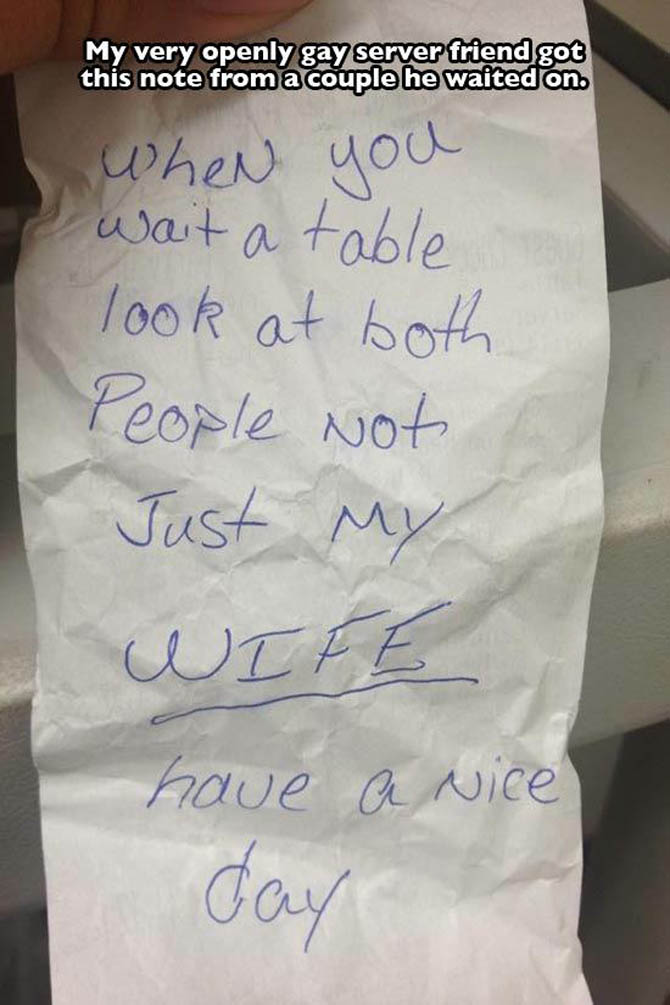 My very openly gay server friend got
this note from a couple he waited on.
When you
wait a table
look at both
People Not
Just My
WIFE
have a Nice
day